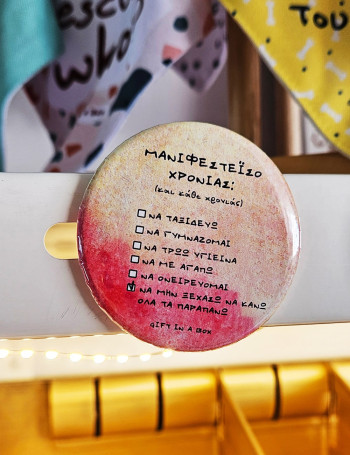 esc
who
του
ΜΑΝΙΦΕΣΤΕΪΣΟ
ΧΡΟΝΙΑΣ:
(και κάθε χρονιάς)
ΝΑ ΤΑΞΙΔΕΥΩ
ΝΑ ΓΥΜΝΑΖΟΜΑΙ
ΝΑ ΤΡΩΩ ΥΓΙΕΙΝΑ
ΝΑ ΜΕ ΑΓΑΠΩ
ΝΑ ΟΝΕΙΡΕΥΟΜΑΙ
ΝΑ ΜΗΝ ΞΕΧΑΣΩ ΝΑ ΚΑΝΩ
ΟΛΑ ΤΑ ΠΑΡΑΠΑΝΩ
GIFT IN A BOX